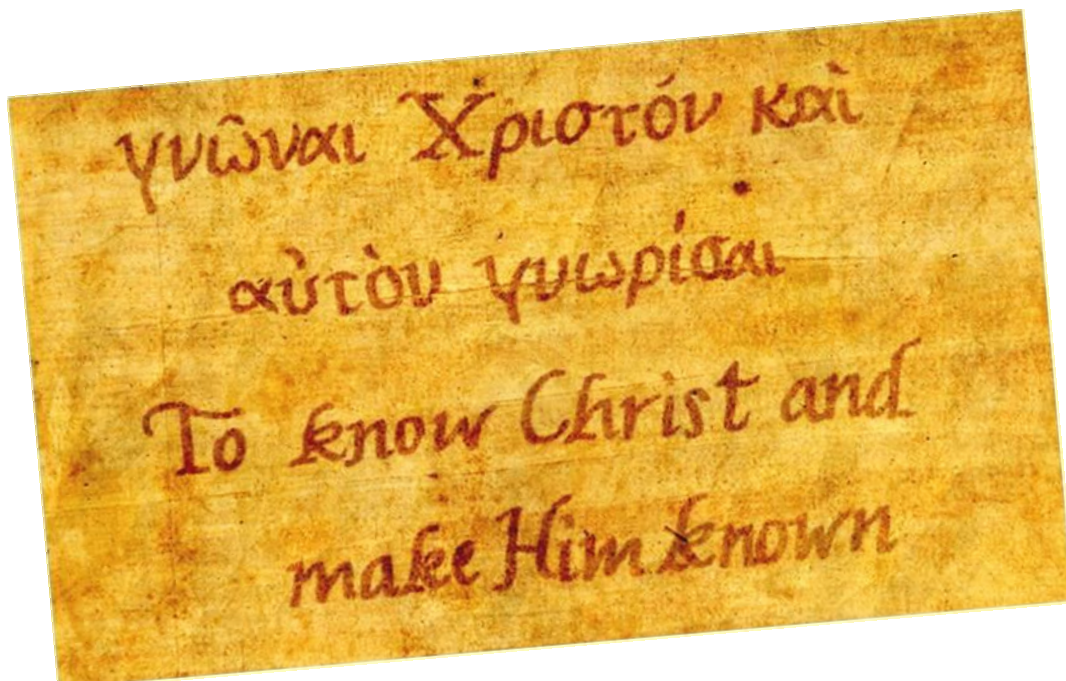 γνῶναι Χριστόν καὶ
αὐτὸν γνωρίσαι
To know Christ and
make Him known